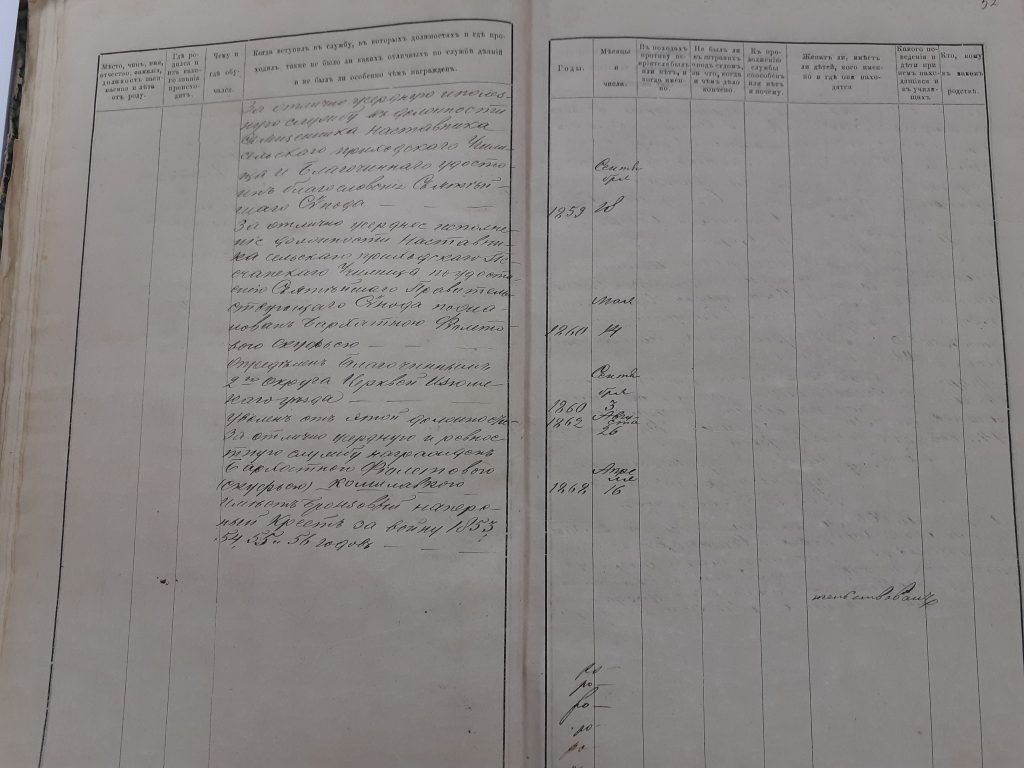 52
Мѣсто, чинъ, имя, отчество, фамилія, должность настоящая и лѣта отъ роду.
Гдѣ родился и изъ какого происходитъ.
Чему и гдѣ обучался.
Когда вступилъ въ службу, въ которыхъ должностяхъ и гдѣ проходилъ, также не было ли какихъ отличныхъ по службѣ дѣяній и не былъ ли особенно чѣмъ награжденъ.
Годы.
Мѣсяцы и числа.
Въ походахъ противу непріятеля былъ или нѣтъ, и когда имянно.
Не былъ ли въ штрафахъ, подъ судомъ, за что, когда и чѣмъ дѣло кончено.
Къ продолженію службы способенъ или нѣтъ и почему.
Женатъ ли, имѣетъ ли дѣтей, кого именно и гдѣ они находятся
Какого поведенія и дѣти при немъ находящіяся и въ училищахъ
Кто, кому въ какомъ родствѣ.
За отлично усердную и полез-
ную службу въ должности
Священника Наставника
сельскаго приходскаго Учили-
ща и Благочиннаго удосто-
енъ благословенія Святѣй-
шаго Сѵнода
Сентя
бря
1859 28
За отлично усердное исполне-
ніе должности Наставни-
ка сельскаго приходскаго Пе-
счанскаго Училища по удосто-
енію Святѣйшаго Правитель-
ствующаго Сѵнода пожа-
лованъ бархатною фіолето-
вого скуфьею
Мая
1860 14
Опредѣленъ Благочиннымъ
2го Округа Церквей Изюм-
скаго уѣзда
Сентя
бря
1860 3
Уволенъ отъ этой должности
1862 Авгу
ста
26
За отлично усердную и ревност-
ную службу награжденъ
бархатного фіолетового
(скуфьею) камилавкого
Апрѣ
ля
1868 16
Имѣетъ бронзовый наперс-
ный крестъ за войну 1853
54, 55 и 56 годовъ
ро-
ро-
ро-
ро